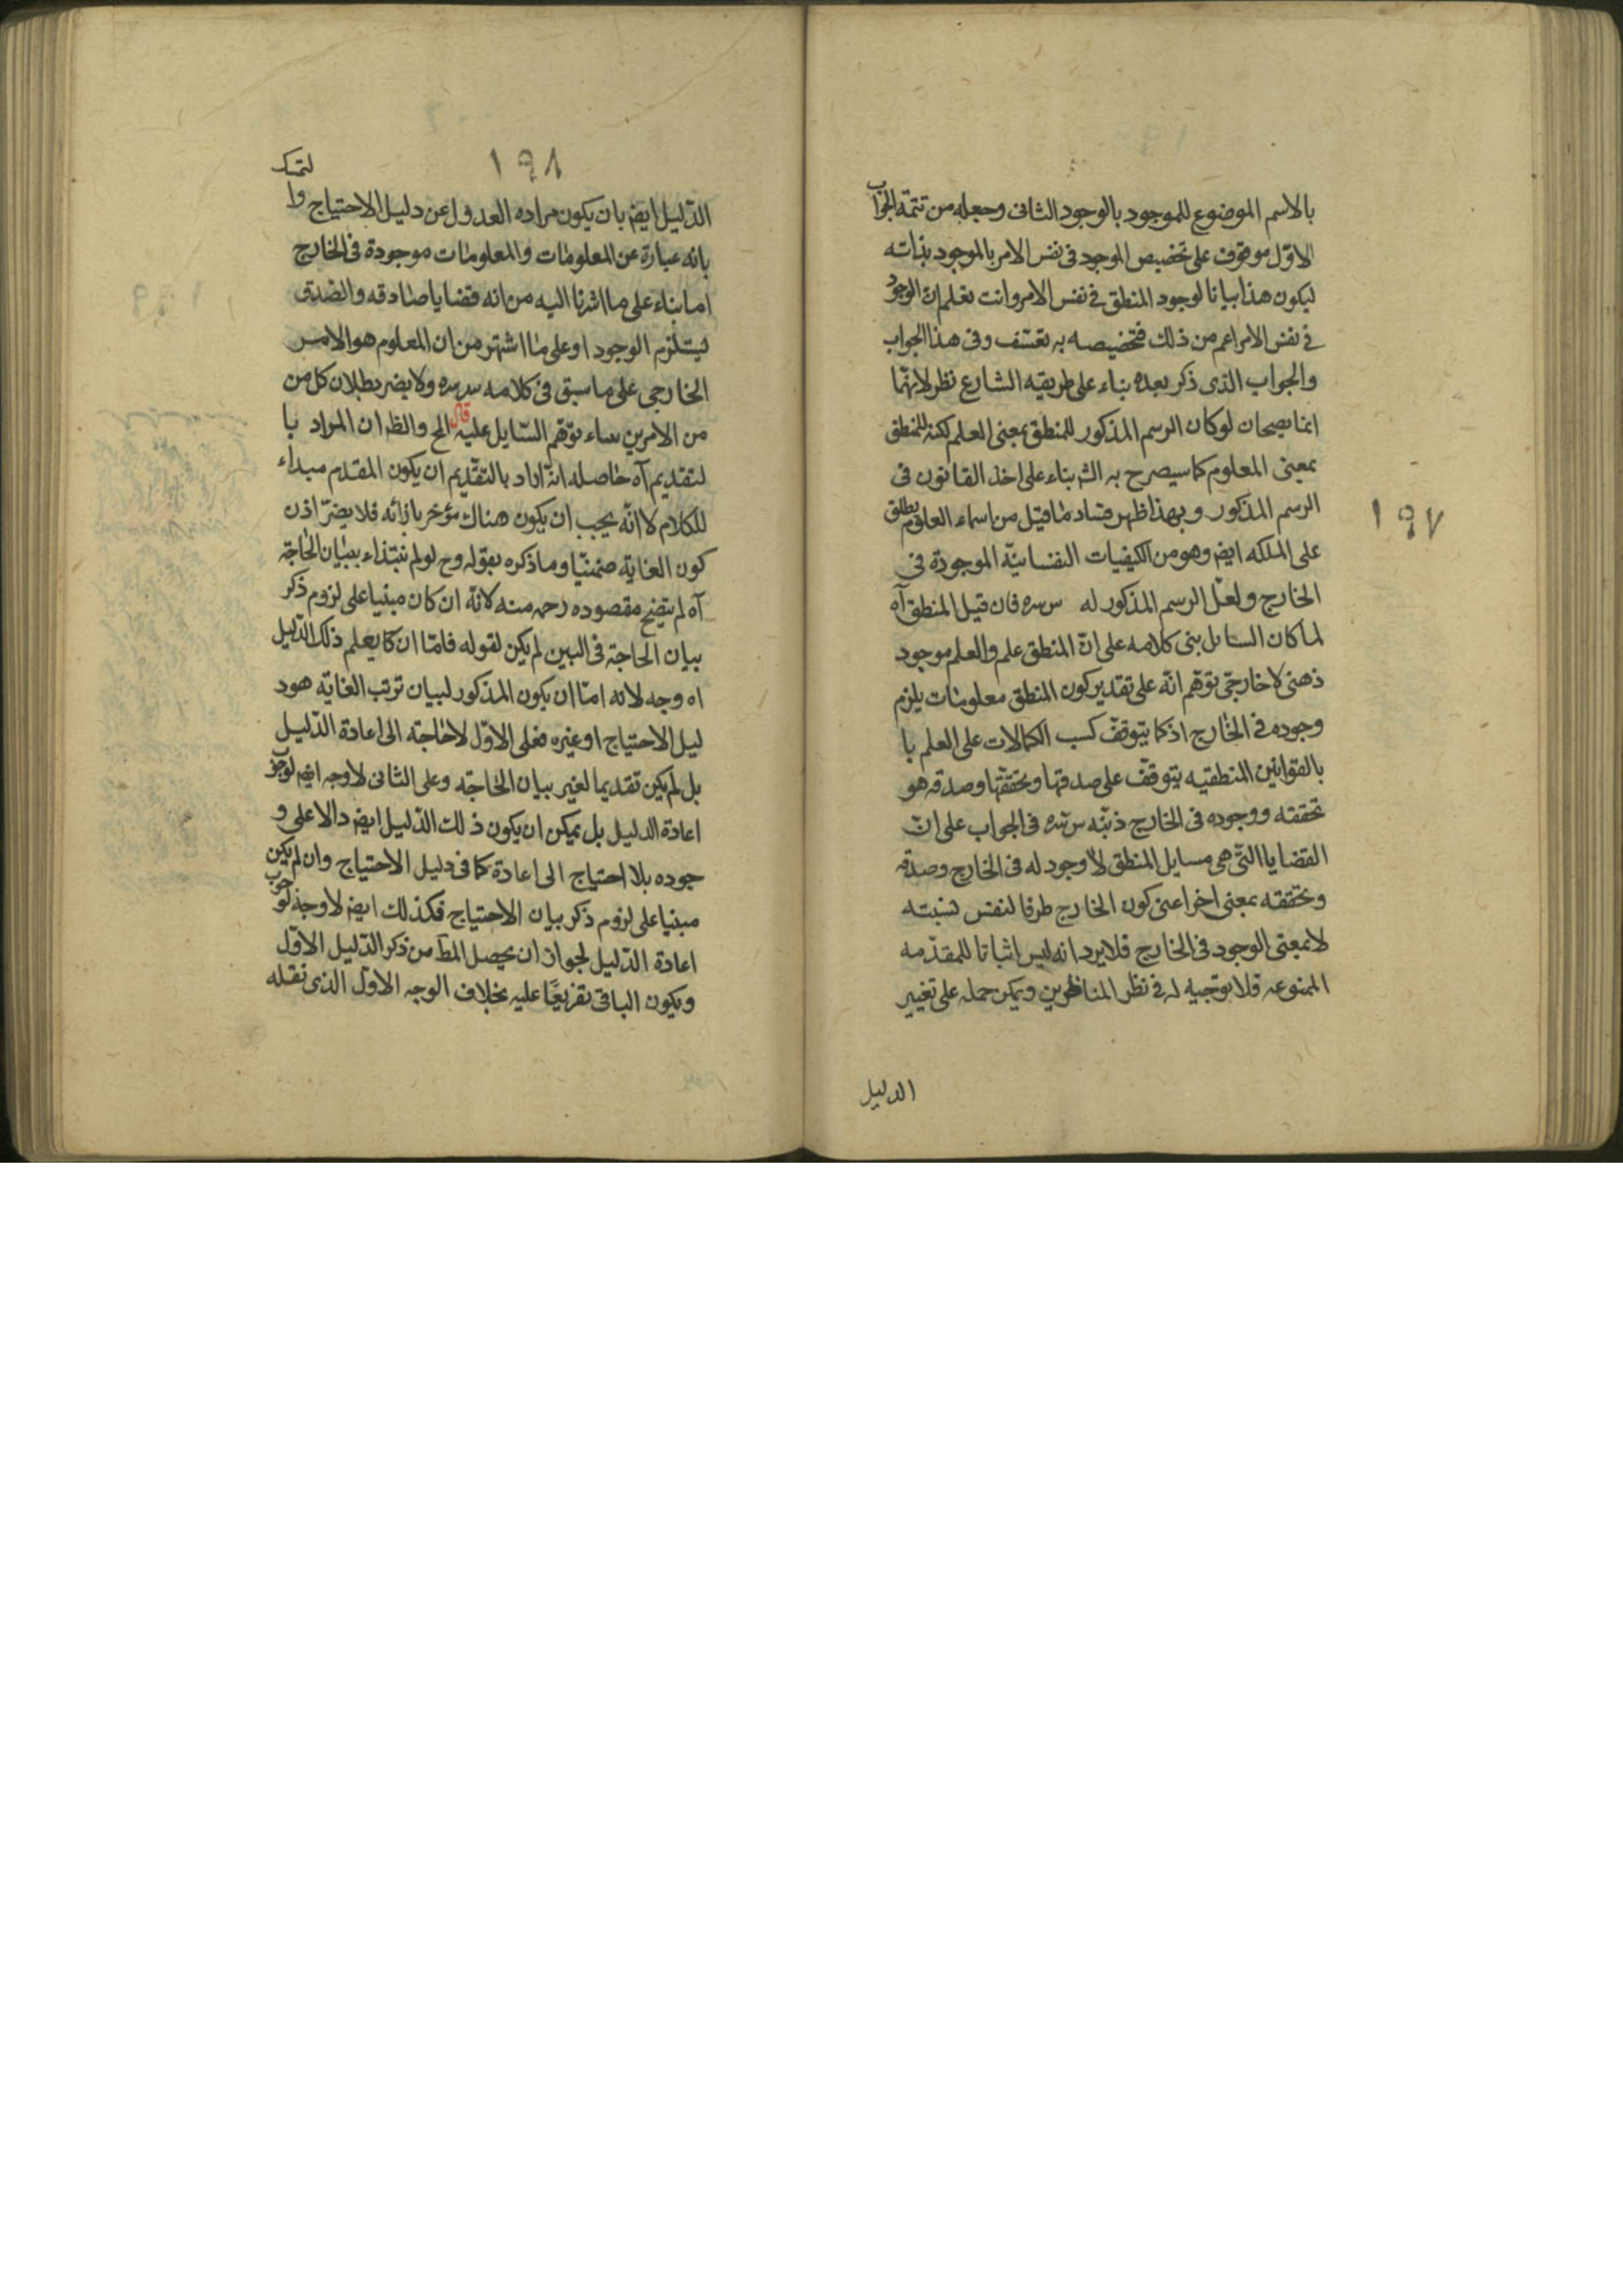 بالاسم الموضوع للموجود بالوجود الثانى وجعله من تتمة الجواب
الاوّل موقوف على تخصيص الموجود فى نفس الامر بالموجود بذاته
ليكون هذا بيانا لوجود المنطق فى نفس الامر وانت تعلم ان الوجود
فى نفس الامر اعم من ذلك فتخصيصه به تعسّف وفى هذا الجواب
والجواب الذى ذكر بعده بناء على طريقه الشارع نظر لانهّما
انما يصحان لو كان الرسم المذكور للمنطق بمعنى العلم لكنه للمنطق
بمعنى المعلوم كما سيصرح به الشر بناء على اخذ القانون فى
الرسم المذكور وبهذا ظهر فساد ما قيل من اسماء العلوم يطلق
١٩٧
على الملكه ايضر وهو من الكيفيات النفسانيّة الموجودة فى
الخارج ولعلّ الرسم المذكور له س سره فان قيل المنطق آه
لما كان السائل بنى كلامه على انّ المنطق علم والعلم موجود
ذهنى لا خارجى توهّم انّه على تقدير كون المنطق معلومات يلزم
وجوده فى الخارج اذ كما يتوقف كسب الكمالات على العلم با
بالقوانين المنطقيه يتوقّف على صدقها وتحققّها وصدقه هو
تحققه ووجوده فى الخارج ذنبّه س سره فى الجواب على انّ
القضايا التّى هى مسايل المنطق لا وجود له فى الخارج وصدقه
وتحققه بمعنى اخر اعنى كون الخارج ظرفا لنفس نسبته
لا بمعنى الوجود فى الخارج فلا يرد انه ليس اثباتا للمقدّمه
الممنوعه فلا توجّيه له فى نظر المناظرين ويمكن حمله على تغيير
الدليل
١٩٨
الدّليل ايضر بان يكون مراده العدول عن دليل الاحتياج وا لتمسّك
بانه عبارة عن المعلومات والمعلومات موجودة فى الخارج
اما بناء على ما اشرنا اليه من انه قضايا صادقه والصّدق
يستلزم الوجود او على ما اشتهر من ان المعلوم هو الامر
الخارجى على ما سبق فى كلامه س سره ولا يضر بطلان كل من
من الامرين بناء توهّم السّايل عليه قال الخ والظر ان المراد با
لتقديم آه حاصله انّه اراد بالتقّديم ان يكون المقدم مبداء
للكلام لا انّه يجب ان يكون هناك مؤخر بازائه فلا يضرّ اذن
كون الغاية ضمنيّا وما ذكره بقوله وح لو لم نبتداء ببيان الحاجة
آه لم يتضح مقصوده رحمه منه لانّه ان كان مبنيا على لزوم ذكر
بيان الحاجة فى البين لم يكن لقوله فامّا ان كما يعلم ذلك الدّليل
اه وجه لانه امّا ان يكون المذكور لبيان ترتب الغايّه هو د
ليل الاحتياج او غيره فعلى الاوّل لا حاجة الى اعادة الدّليل
بل لم يكن تقديما لغير بيان الحاجة وعلى الثانى لا وجه ايضر لوجوب
اعادة الدليل بل يمكن ان يكون ذلك الدّليل ايضر دالا على و
جوده بلا احتياج الى اعادة كما فى دليل الاحتياج وان لم يكن
مبنيا على لزوم ذكر بيان الاحتياج فكذلك ايضر لا وجه لوجوب
اعادة الدّليل لجواز ان يحصل المطّ من ذكر الدّليل الاوّل
ويكون الباقى تفريعًا عليه بخلاف الوجه الاوّل الذى نقله